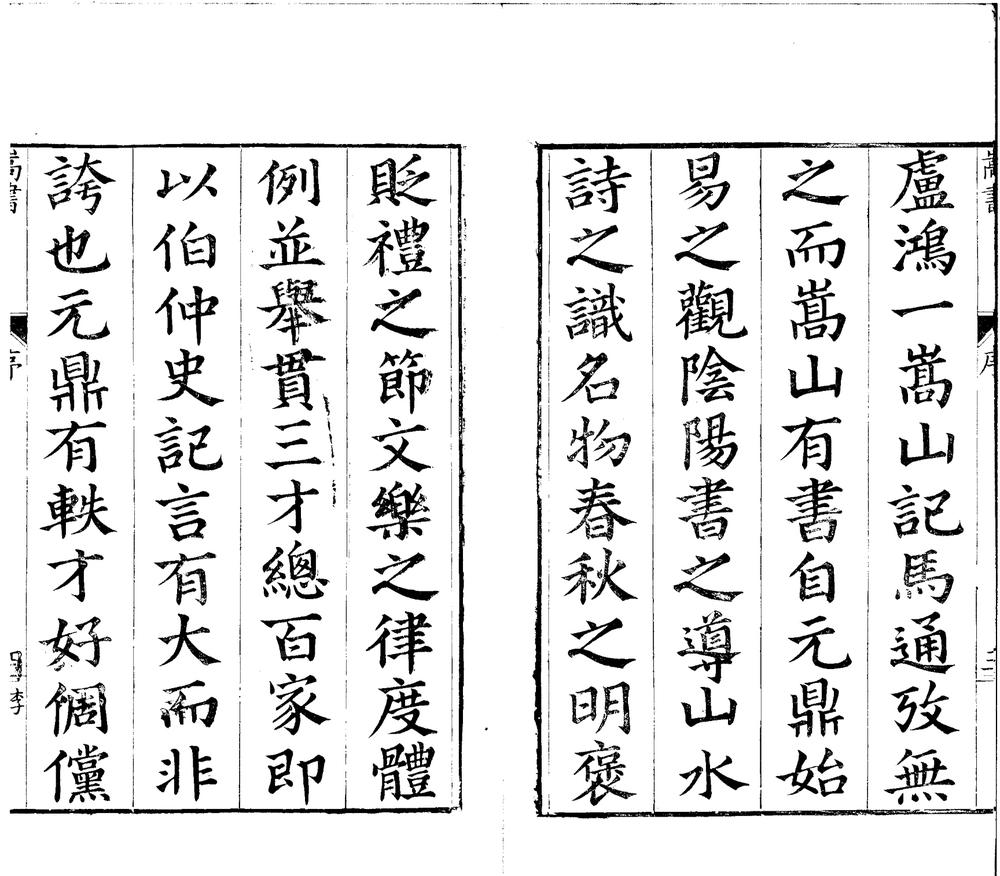 盧鴻一嵩山記馬通攷無
之而嵩山有書自元鼎始
易之觀陰陽書之導山水
詩之識名物春秋之明褒
貶禮之節文樂之律度體
例並舉貫三才總百家即
以伯仲史記言有大而非
誇也元鼎有軼才好倜儻